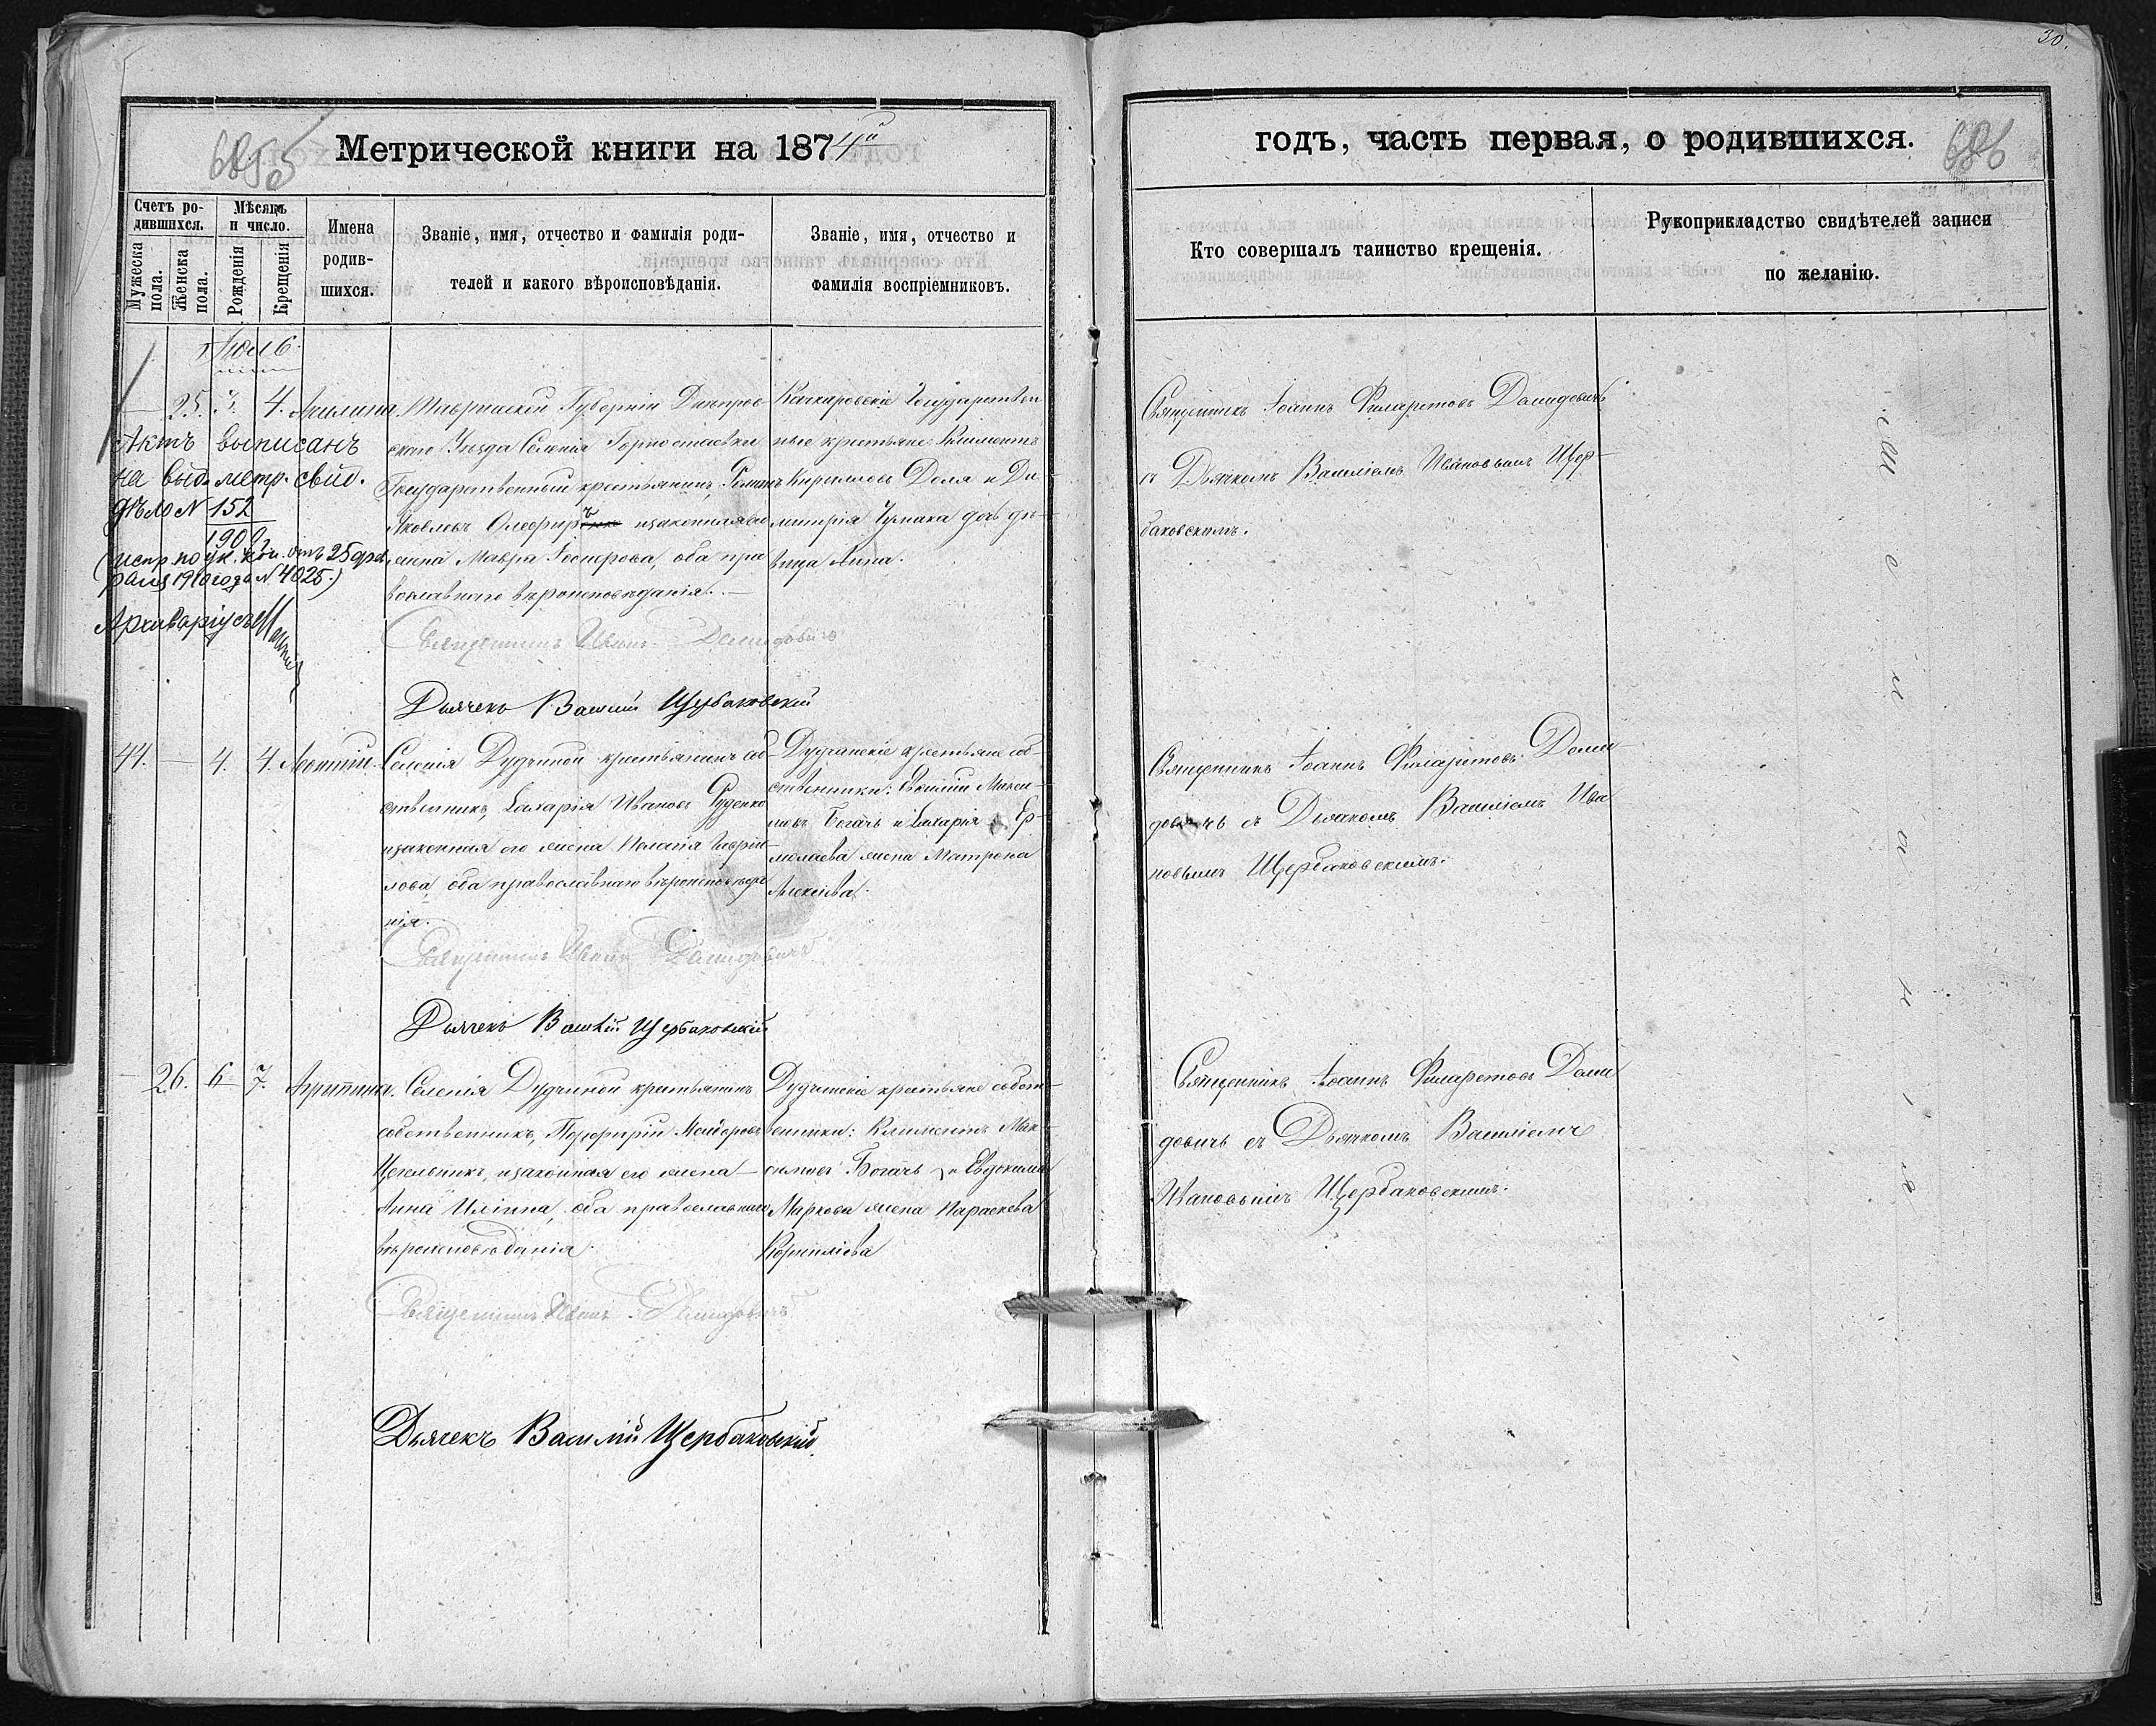 30.
Метрической книги на 1874й
годъ, часть первая, о родившихся.
686
Счетъ ро-
дившихся.
Мужеска пола.
Женска пола.
Мѣсяцъ
и число.
Рожденія
Крещенія
Имена
родив-
шихся.
Званіе, имя, отчество и фамилія роди-
телей и какого вѣроисповѣданія.
Званіе, имя, отчество и
фамилія воспріемниковъ.
Кто совершалъ таинство крещенія.
Рукоприкладство свидѣтелей записи
по желанію.
Іюль
— 25. 3. 4. Акилина.
Актъ выписанъ
на выд. метр. свид.
дѣло N 152
(испр. по ук. кон. отъ 25 фев
раля 1910 года N 4025.)
Архиваріусъ
Таврической Губерніи Днепров
скаго Уѣзда Селенія Горностаевки
Государственный крестьянинъ, Романъ
Яковлевъ Олефиръ и законная его
жена Мавра Несторова, оба пра
вославнаго вѣроисповѣданія. —
Священникъ Иванъ Демидовичъ
Дьячекъ Василій Щербаковскій
Качкаровскіе Государствен
ные крестьяне: Климентъ
Кириловъ Доля и Ди
митрія Чумака дочь дѣ-
вица Анна.
Священникъ Іоаннъ Филаретовъ Демидовичъ
съ Дьячкомъ Василіемъ Ивановымъ Щер-
баковскимъ.
44. — 4. 4. Леонтій.
Селенія Дудчиной крестьянинъ соб
ственникъ, Захарія Ивановъ Руденко
и законная его жена Пелагія Гаврии-
лова, оба православнаго вѣроисповѣда
нія.
Священникъ Иванъ Демидовичъ
Дьячекъ Василій Щербаковскій
Дудчанскіе крестьяне соб-
ственники: Василій Макси-
мовъ Богачъ и Захарія Ер-
молаева жена Матрона
Алексѣева.
Священникъ Іоаннъ Филаретовъ Деми
довичъ съ Дьячкомъ Василіемъ Ива
новымъ Щербаковскимъ.
— 26. 6 7. Агрипина.
Селенія Дудчиной крестьянинъ
собственникъ, Порфирій Ѳеодоровъ
Цегельникъ, и законная его жена —
Анна Иліина, оба православнаго
вѣроисповѣданія.
Священникъ Иванъ Демидовичъ
Дьячекъ Василій Щербаковскій.
Дудчанскіе крестьяне собст-
венники: Климентъ Мак-
симовъ Богачъ и Евдокима
Маркова жена Параскева
Корниліева
Священникъ Іоаннъ Филаретовъ Деми
довичъ съ Дьячкомъ Василіемъ
Ивановымъ Щербаковскимъ.